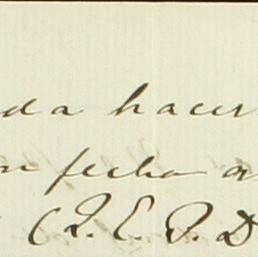 da hacer
fecha
(Q. E. P. D